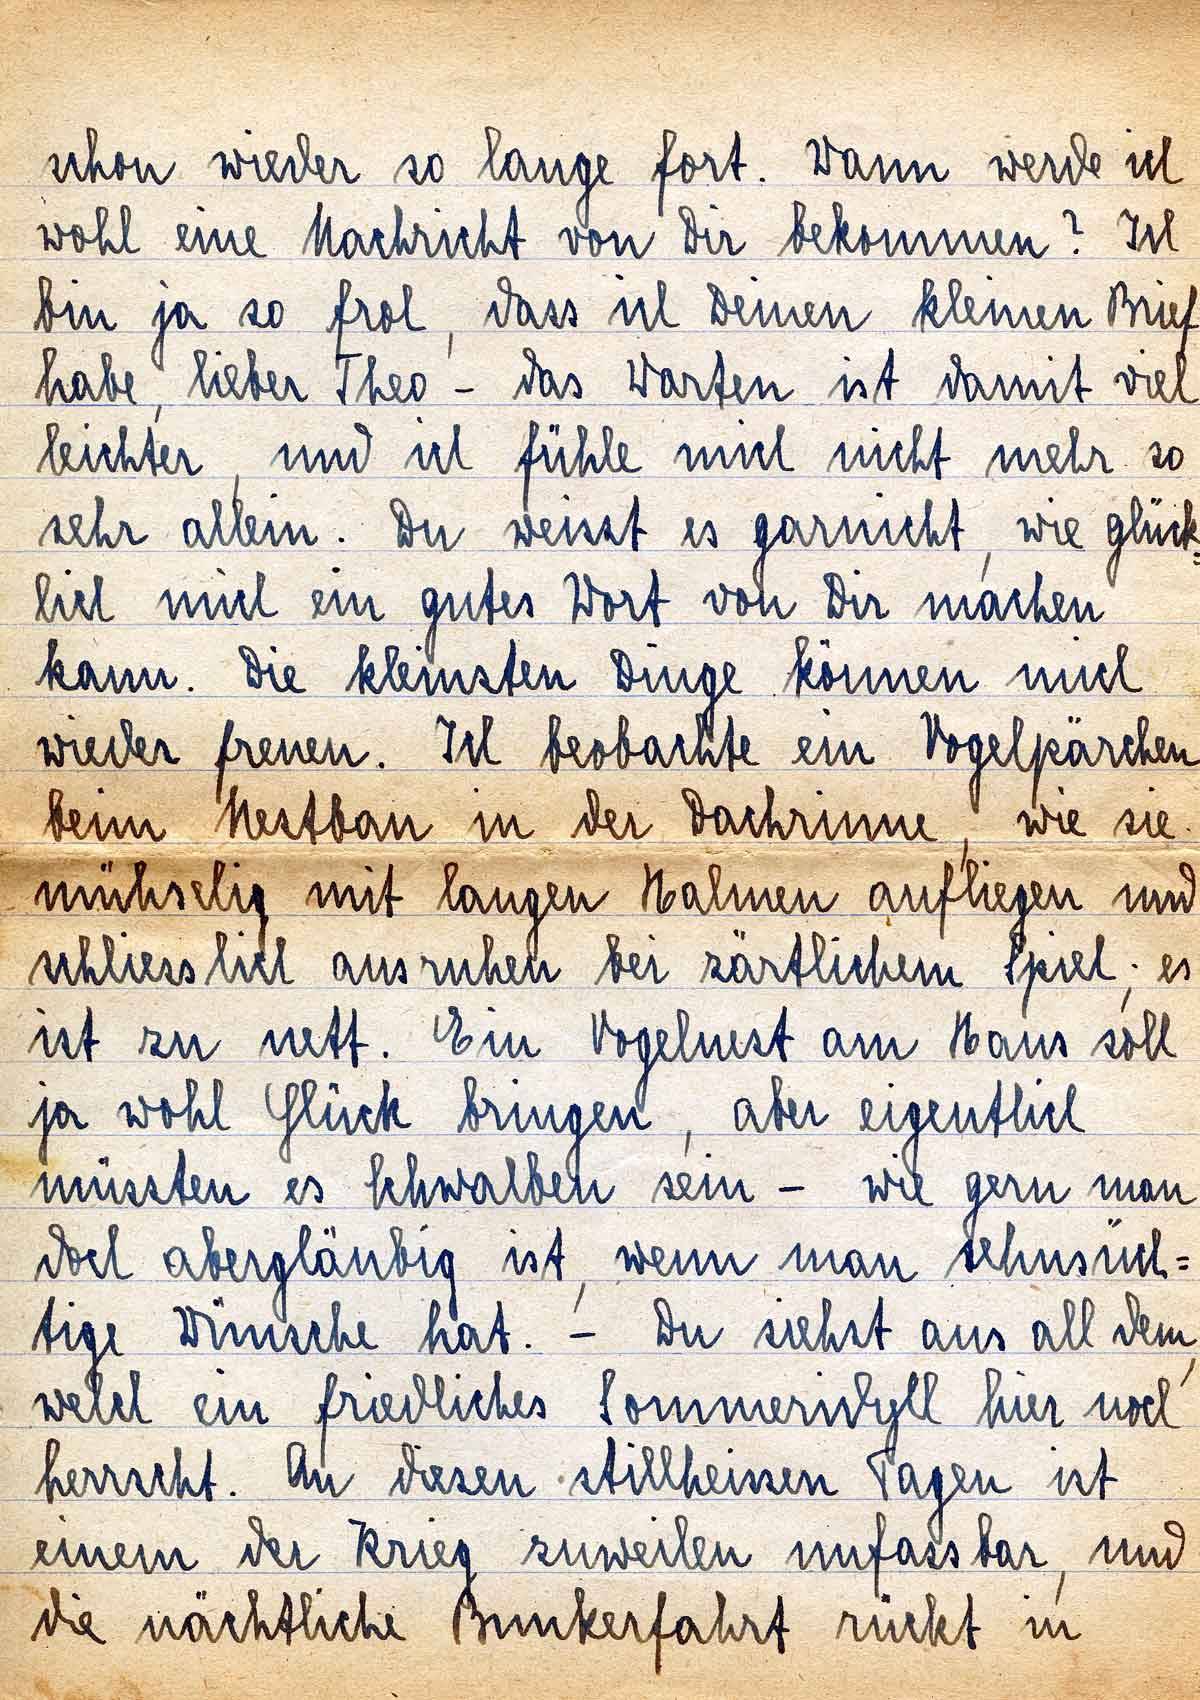 schon wieder so lange fort. Wann werde ich
wohl eine Nachricht von Dir bekommen? Ich
bin ja so froh, dass ich Deinen kleinen Brief
habe, lieber Theo – das Warten ist damit viel
leichter, und ich fühle mich nicht mehr so
sehr allein. Du weisst es garnicht, wie glück=
lich mich ein gutes Wort von Dir machen
kann. Die kleinsten Dinge können mich
wieder freuen. Ich beobachte ein Vogelpärchen
beim Nestbau in der Dachrinne, wie sie
mühselig mit langen Halmen auffliegen und
schliesslich ausruhen bei zärtlichem Spiel; es
ist zu nett. Ein Vogelnest am Haus soll
ja wohl Glück bringen, aber eigentlich
müssten es Schwalben sein – wie gern man
doch abergläubig ist, wenn man sehnsüch=
tige Wünsche hat. – Du siehst aus all dem,
welch ein friedliches Sommeridyll hier noch
herrscht. An diesen stillheissen Tagen ist
einem der Krieg zuweilen unfassbar, und
die nächtliche Bunkerfahrt rückt in